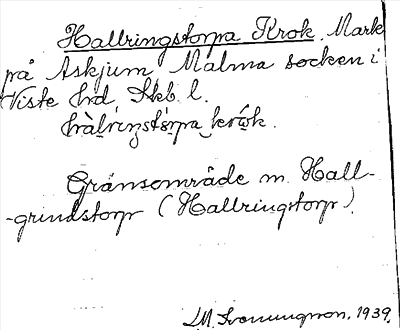 Hallringstorpa Krok. Mark
på Askjum, Malma socken i
Viste hrd, Skb l.
hàlrıŋstɷrpa krωk.
Gränsområde m. Hall-
-grindstorp (Hallringstorp).
1939.